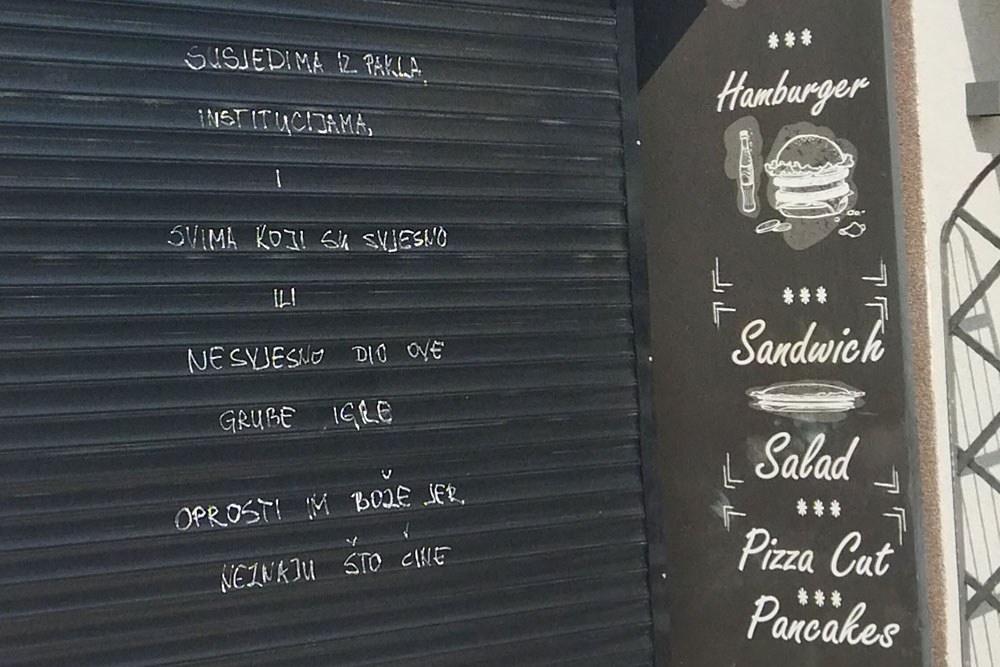 SUSJEDIMA IZ PAKLA,
INSTITUCIJAMA,
I
SVIMA KOJI SU SVJESNO
ILI
NESVJESNO DIO OVE
GRUBE IGRE
OPROSTI IM BOŽE JER,
NEZNAJU ŠTO ĆINE
Hamburger
Sandwich
Salad
Pizza Cut
Pancakes